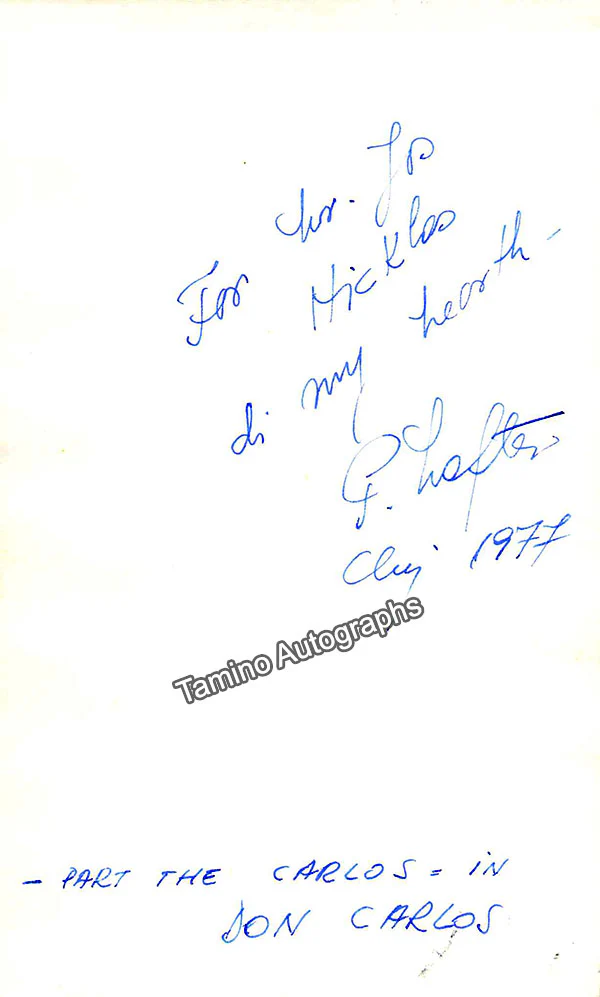 For Mr. Jos
Nicklas
di my hearth -
Cluj 1977
Tamino Autographs
- PART THE CARLOS = IN
DON CARLOS